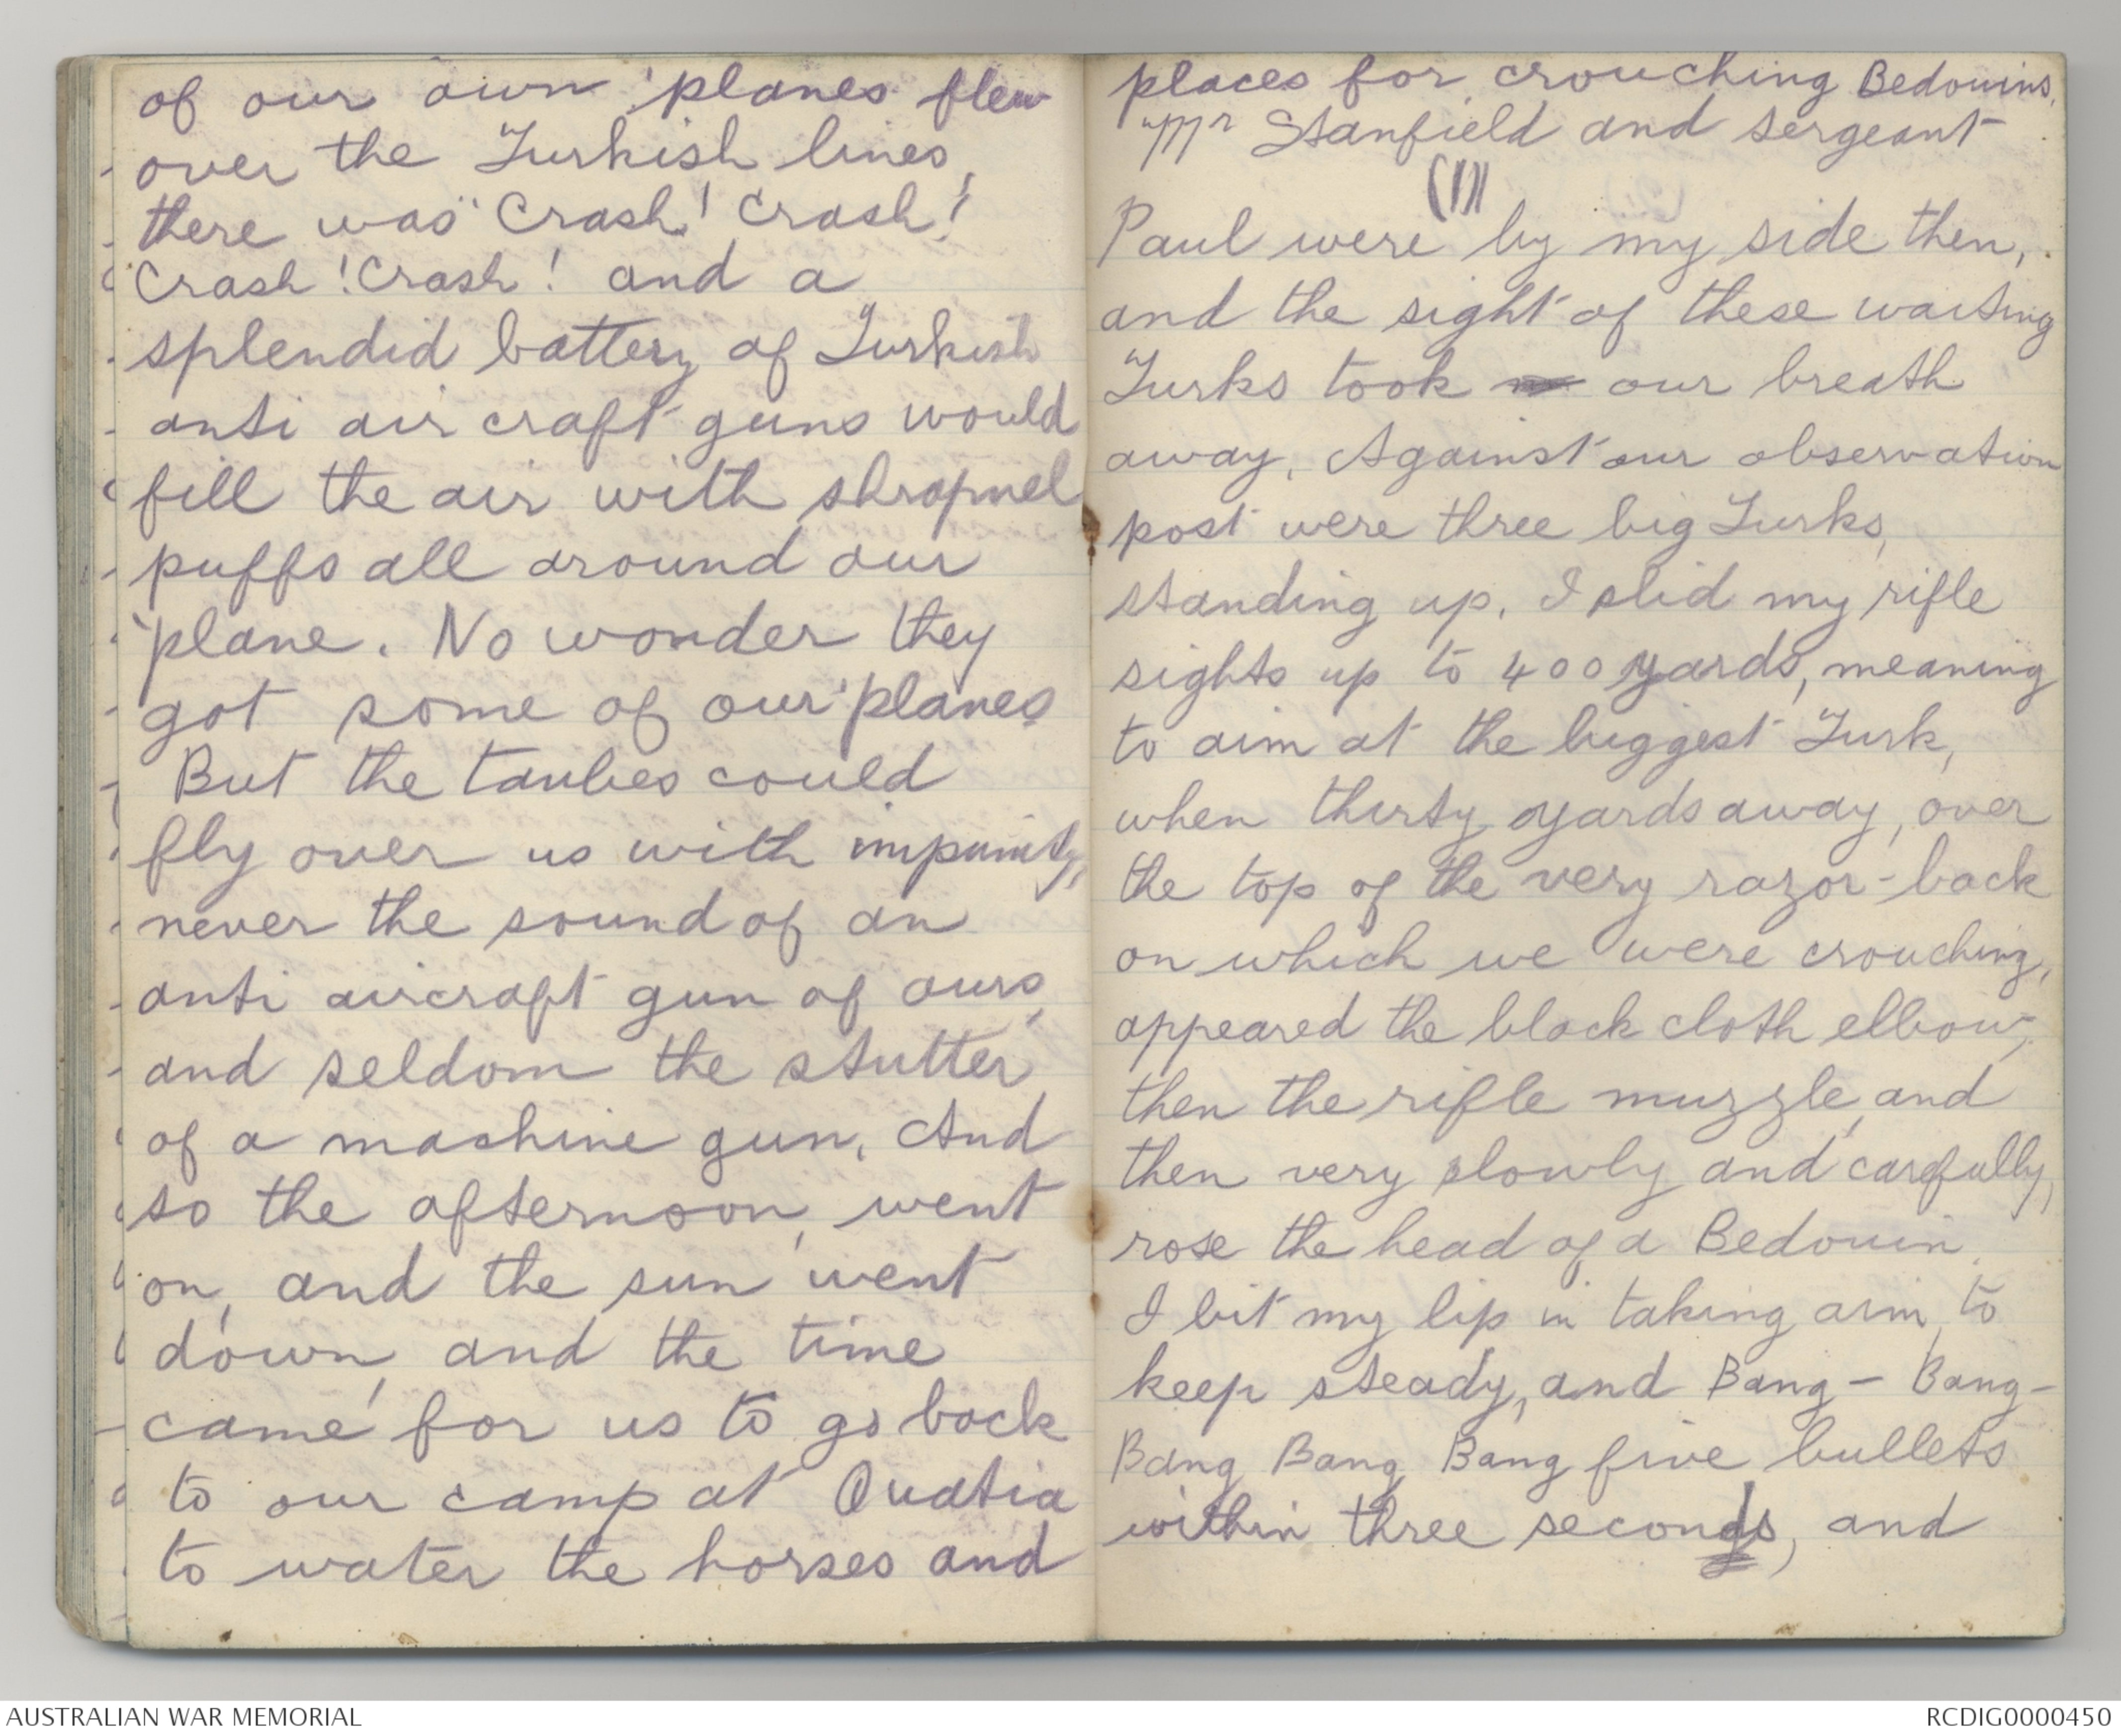 of our own 'planes flew
over the Turkish lines,
there was "Crash! Crash!
Crash! Crash! and a
splendid battery of Turkish
anti air craft guns would
fill the air with shrapnel
puffs all around our
'plane. No wonder they
got some of our 'planes
But the taubes could
fly over us with impunity,
never the sound of an
anti aircraft gun of ours,
and seldom the stutter
of a machine gun. And
so the afternoon, went
on, and the sun went
down, and the time
came for us to go back
to our camp at Quatia
to water the horses and
places for crouching Bedouins.
Mr Stanfield and sergeant
Paul were by my side then,
and the sight of these waiting
Turks took our breath
away. Against our observation
post were three big Turks,
standing up. I slid my rifle
sights up to 400 yards, meaning
to aim at the biggest Turk,
when thirty yards away, over
the top of the very razor-back
on which we were crouching,
appeared the black cloth elbow,
then the rifle muzzle, and
then very slowly and carefully,
rose the head of a Bedouin.
I bit my lip in taking aim, to
keep steady, and Bang - Bang -
Bang Bang Bang five bullets
within three seconds, and
AUSTRALIAN WAR MEMORIAL
RCDIG0000450